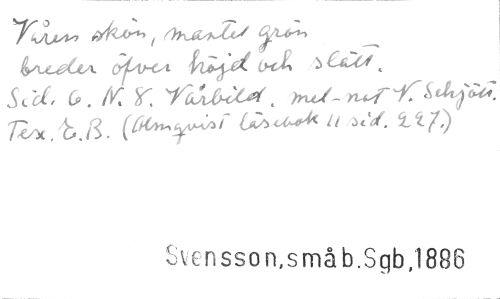 Våren skön, mantel grön
breder öfver höjd och slätt.
Sid. 6. N. 8. Vårbild. mel-not V. Schjött.
Tex. E. B. (Almqvist läsebok II sid. 227.)
Svensson, småb.Sgb,1886